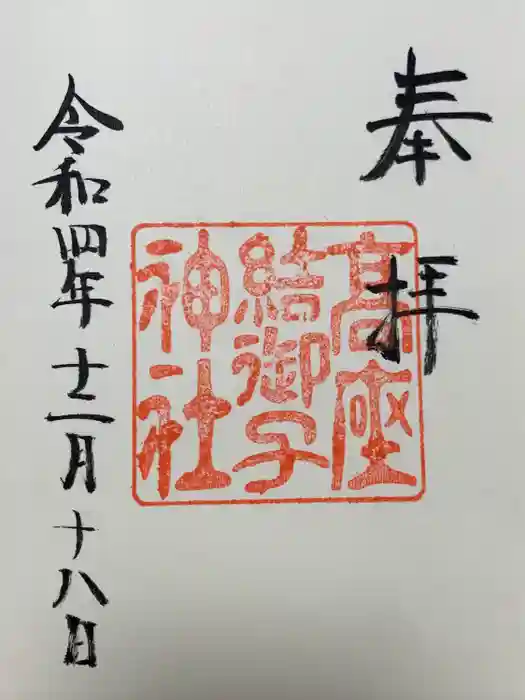 奉拝
高座
結御子
神社
令和四年十二月十八日